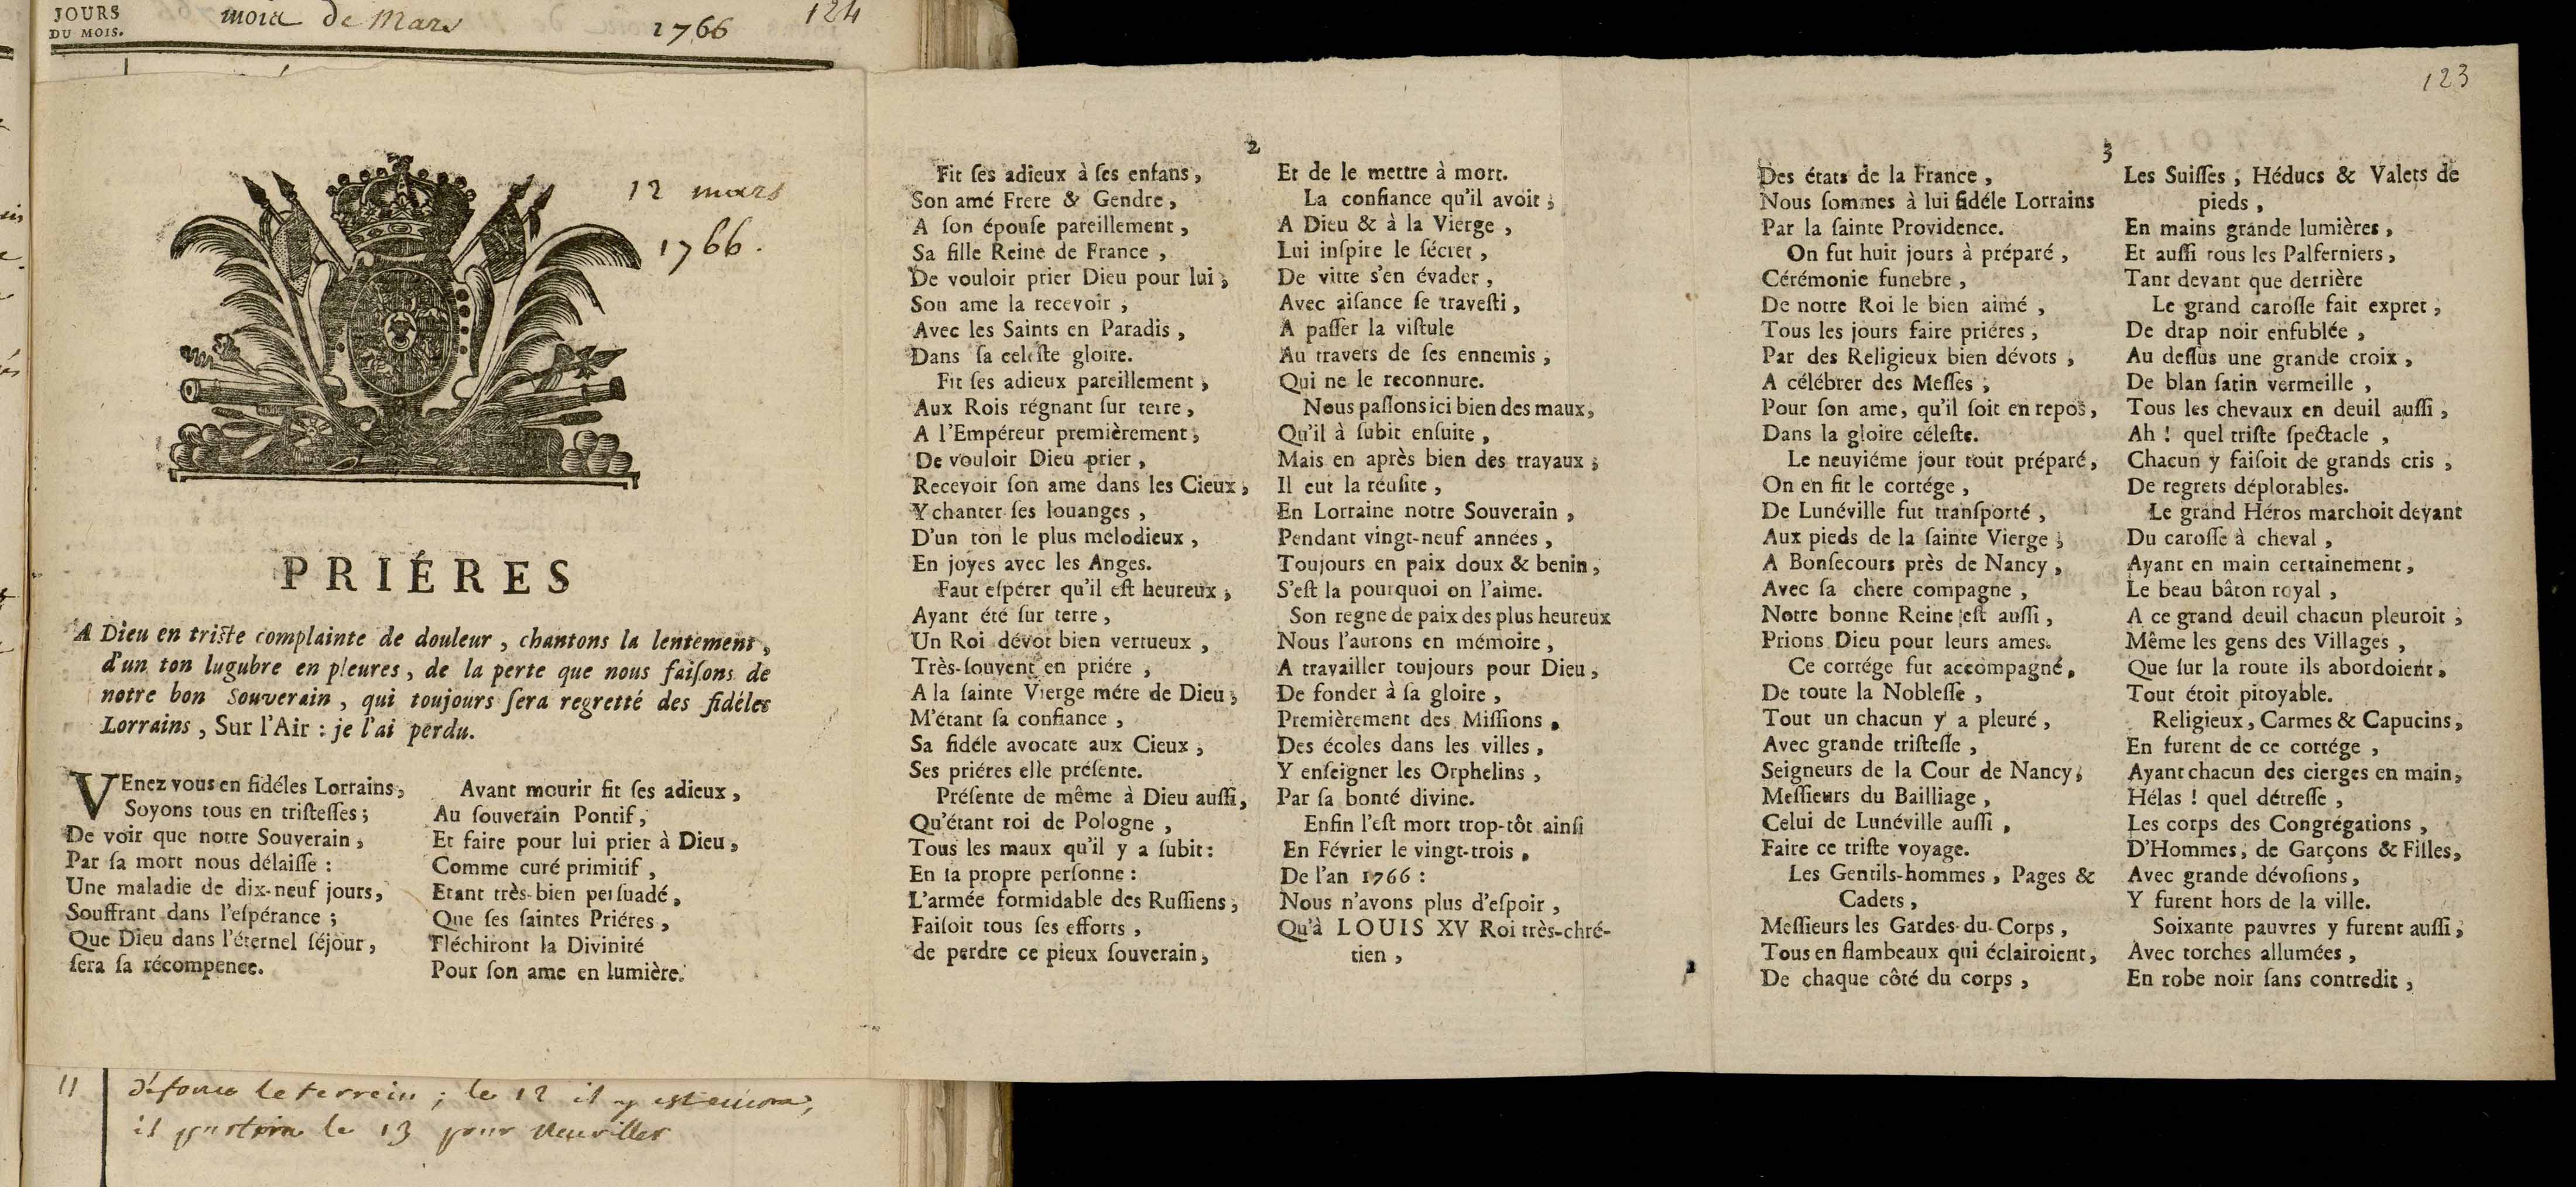 JOURS
DU MOIS.
mois de Mars
1766
124
123
12 mars
1766.
PRIÉRES
A Dieu en triſte complainte de douleur, chantons la lentement,
d'un ton lugubre en pleures, de la perte que nous faiſons de
notre bon Souverain, qui toujours ſera regretté des fidéles
Lorrains, Sur l'Air : je l'ai perdu.
VEnez vous en fidéles Lorrains,
Soyons tous en triſteſſes ;
De voir que notre Souverain,
Par ſa mort nous délaiſſe :
Une maladie de dix-neuf jours,
Souffrant dans l'eſpérance ;
Que Dieu dans l'éternel ſéjour,
ſera ſa récompence.
Avant mourir fit ſes adieux,
Au ſouverain Pontif,
Et faire pour lui prier à Dieu,
Comme curé primitif,
Etant très-bien perſuadé,
Que ſes ſaintes Priéres,
Fléchiront la Divinité
Pour ſon ame en lumière.
2
Fit ſes adieux à ſes enfans,
Son amé Frere & Gendre,
A ſon épouſe pareillement,
Sa fille Reine de France,
De vouloir prier Dieu pour lui,
Son ame la recevoir,
Avec les Saints en Paradis,
Dans ſa celeſte gloire.
Fit ſes adieux pareillement,
Aux Rois régnant ſur terre,
A l'Empéreur premièrement,
De vouloir Dieu prier,
Recevoir ſon ame dans les Cieux,
Y chanter ſes louanges,
D'un ton le plus melodieux,
En joyes avec les Anges.
Faut eſpérer qu'il eſt heureux ;
Ayant été ſur terre,
Un Roi dévot bien vertueux,
Très-ſouvent en priére,
A la ſainte Vierge mére de Dieu ;
M'étant ſa confiance,
Sa fidéle avocate aux Cieux,
Ses priéres elle préſente.
Préſente de même à Dieu auſſi,
Qu'étant roi de Pologne,
Tous les maux qu'il y a ſubit :
En ſa propre perſonne :
L'armée formidable des Ruſſiens,
Faiſoit tous ſes efforts,
de perdre ce pieux ſouverain,
Et de le mettre à mort.
La confiance qu'il avoit ;
A Dieu & à la Vierge,
Lui inſpire le ſécret,
De vitre s'en évader,
Avec aiſance ſe traveſti,
A paſſer la viſtule
Au travers de ſes ennemis,
Qui ne le reconnure.
Nous paſſons ici bien des maux,
Qu'il à ſubit enſuite,
Mais en après bien des travaux ;
Il eut la réuſite,
En Lorraine notre Souverain,
Pendant vingt-neuf années,
Toujours en paix doux & benin,
S'eſt la pourquoi on l'aime.
Son regne de paix des plus heureux
Nous l'aurons en mémoire,
A travailler toujours pour Dieu,
De fonder à ſa gloire,
Premièrement des Miſſions,
Des écoles dans les villes,
Y enſeigner les Orphelins,
Par ſa bonté divine.
Enfin l'eſt mort trop-tôt ainſi
En Février le vingt-trois,
De l'an 1766 :
Nous n'avons plus d'eſpoir,
Qu'à LOUIS XV Roi très-chré-
tien,
3
Des états de la France,
Nous ſommes à lui fidéle Lorrains
Par la ſainte Providence.
On fut huit jours à préparé,
Cérémonie funebre,
De notre Roi le bien aimé,
Tous les jours faire priéres,
Par des Religieux bien dévots,
A célébrer des Meſſes ;
Pour ſon ame, qu'il ſoit en repos,
Dans la gloire céleſte.
Le neuviéme jour tout préparé,
On en fit le cortége,
De Lunéville fut tranſporté,
Aux pieds de la ſainte Vierge ;
A Bonſecours près de Nancy,
Avec ſa chere compagne,
Notre bonne Reine eſt auſſi,
Prions Dieu pour leurs ames.
Ce cortége fut accompagné,
De toute la Nobleſſe,
Tout un chacun y a pleuré,
Avec grande triſteſſe,
Seigneurs de la Cour de Nancy,
Meſſieurs du Bailliage,
Celui de Lunéville auſſi,
Faire ce triſte voyage.
Les Gentils-hommes, Pages &
Cadets,
Meſſieurs les Gardes-du-Corps,
Tous en flambeaux qui éclairoient,
De chaque côté du corps,
Les Suiſſes, Héducs & Valets de
pieds,
En mains grande lumières,
Et auſſi tous les Palferniers,
Tant devant que derrière
Le grand caroſſe fait expret,
De drap noir enfublée,
Au deſſus une grande croix,
De blan ſatin vermeille,
Tous les chevaux en deuil auſſi,
Ah ! quel triſte ſpectacle,
Chacun y faiſoit de grands cris,
De regrets déplorables.
Le grand Héros marchoit devant
Du caroſſe à cheval,
Ayant en main certainement,
Le beau bâton royal,
A ce grand deuil chacun pleuroit ;
Même les gens des Villages,
Que ſur la route ils abordoient,
Tout étoit pitoyable.
Religieux, Carmes & Capucins,
En furent de ce cortége,
Ayant chacun des cierges en main,
Hélas ! quel détreſſe,
Les corps des Congrégations,
D'Hommes, de Garçons & Filles,
Avec grande dévoſions,
Y furent hors de la ville.
Soixante pauvres y furent auſſi,
Avec torches allumées,
En robe noir ſans contredit,
11
le terrein ; le 12 il y est encore,
il le 13 pour